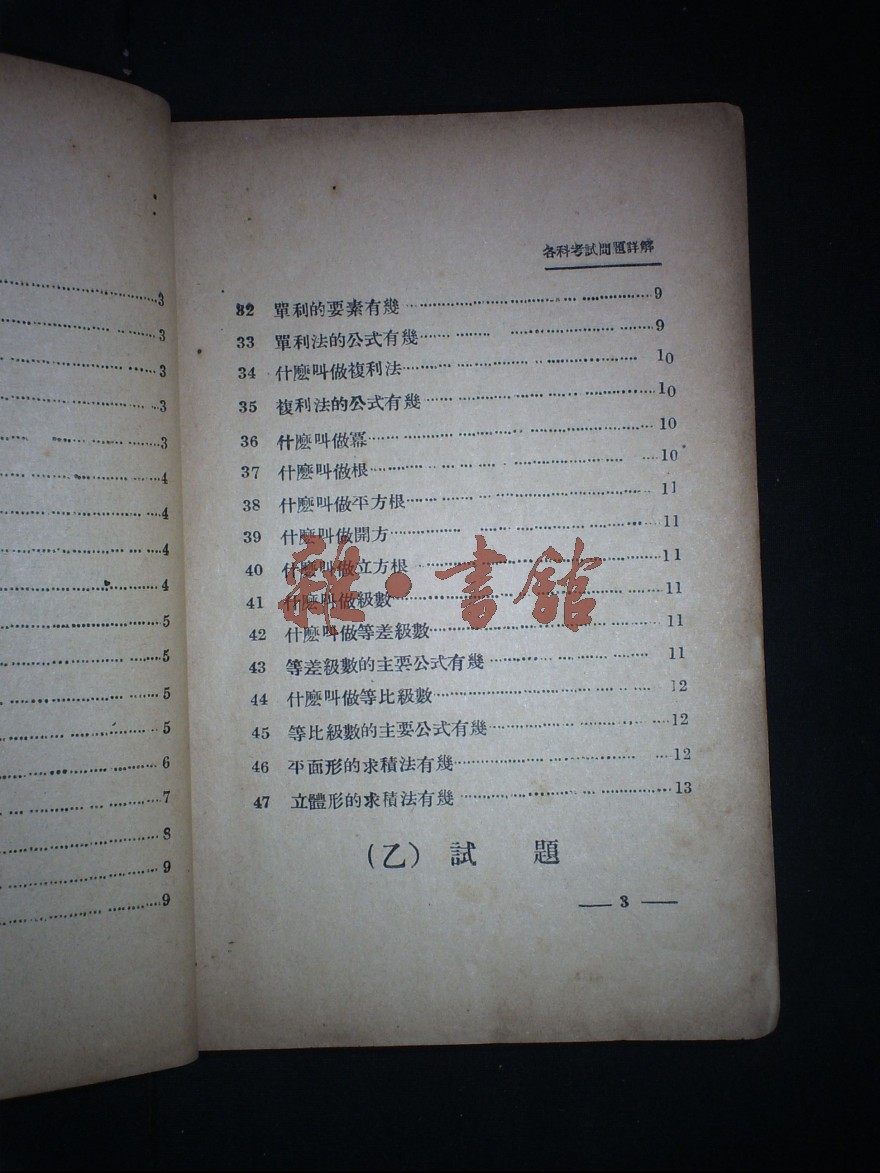 3
3
3
3
3
4
4
4
4
5
5
5
5
6
7
8
9
9
各科考試問題詳解
32 單利的要素有幾 9
33 單利法的公式有幾 9
34 什麽叫做複利法 10
35 複利法的公式有幾 10
36 什麽叫做冪 10
37 什麽叫做根 10
38 什麽叫做平方根 11
39 什麽叫做開方 11
40 什麽叫做立方根 11
41 什麽叫做級數 11
42 什麽叫做等差級數 11
43 等差級數的主要公式有幾 11
44 什麽叫做等比級數 12
45 等比級數的主要公式有幾 12
46 平面形的求積法有幾 12
47 立體形的求積法有幾 13
(乙) 試 題
— 3 —
雜·書館